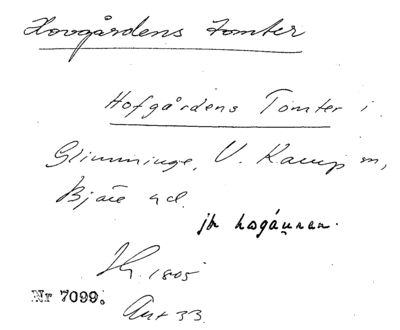 Hovgårdens Tomter
Hofgårdens Tomter i
Glimminge, V. Karup sn,
Bjäre hd.
jfr hogáunan.
1805
Nr 7099.
Ant 33.